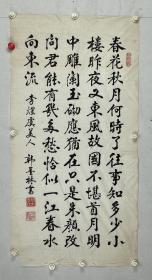 春花秋月何時了往事知多少小
樓昨夜又東風故國不堪首月明
中雕闌玉砌應猶在只是朱顏改
問君能有幾多愁恰似一江春水
向東流 李煜虞美人 林書